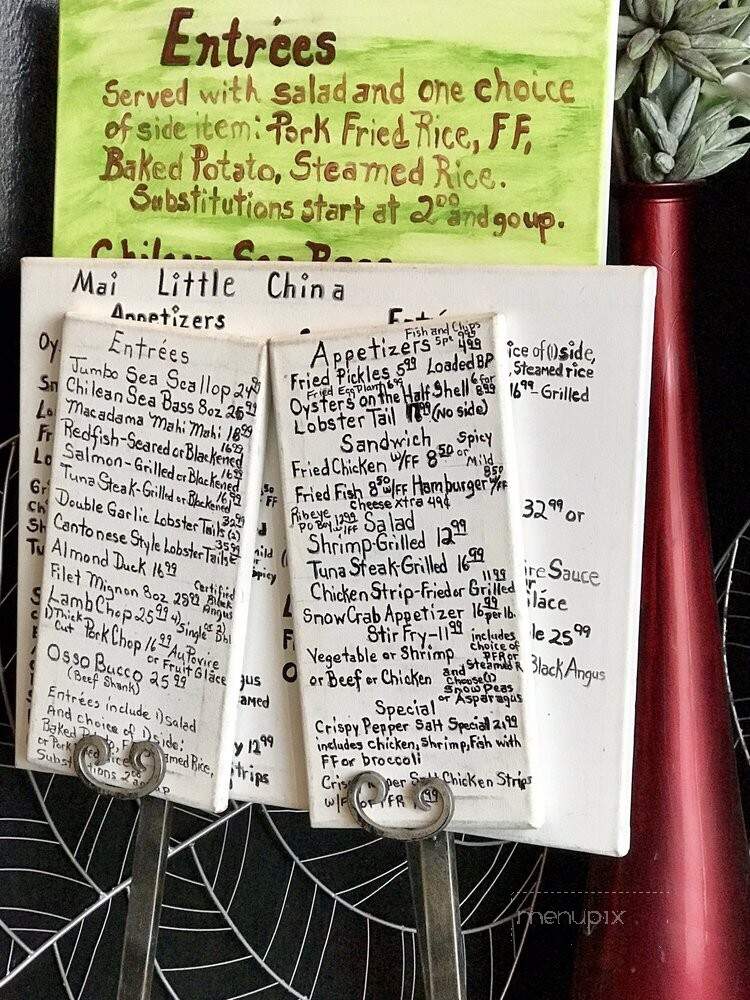 Entrées
Served with salad and one choice
of side item: Pork Fried Rice, FF,
Baked Potato, Steamed Rice.
Substitutions start at 2⁰⁰ and go up.
Chilean Sea Bass
Mai Little China
Appetizers
Entrées
Jumbo Sea Scallop 24⁹⁹
Chilean Sea Bass 8oz 26⁹⁹
Macadama Mahi Mahi 18⁹⁹
Redfish-Seared or Blackened 16⁹⁹
Salmon-Grilled or Blackened 16⁹⁹
Tuna Steak-Grilled or Blackened 16⁹⁹
Double Garlic Lobster Tails (2) 32⁹⁹
Cantonese Style Lobster Tails 35⁹⁹
Almond Duck 16⁹⁹
Filet Mignon 8oz 28⁹⁹ Certified Black Angus
Lamb Chop 25⁹⁹
1) Thick Cut Pork Chop 16⁹⁹ Au Povire
or Fruit Glace
Osso Bucco 25⁹⁹
(Beef Shank)
Entrées include 1) salad
And choice of 1) side:
Fish and Chips
5pc 9⁹⁹
Appetizers 4⁹⁹
Fried Pickles 5⁹⁹ Loaded BP
Fried Egg Plant 6⁹⁹
Oysters on the Half Shell 6 for 8⁹⁹
Lobster Tail (No side)
Sandwich Spicy or Mild
Fried Chicken w/FF 8⁵⁰
Fried Fish 8⁵⁰ w/FF Hamburger w/FF 8⁵⁰
Cheese xtra 49¢
Ribeye Po Boy 12⁹⁹ w/FF
Salad
Shrimp-Grilled 12⁹⁹
Tuna Steak-Grilled 16⁹⁹
Chicken Strip-Fried or Grilled 11⁹⁹
Snow Crab Appetizer 16⁹⁹ per lb.
Stir Fry-11⁹⁹
Vegetable or Shrimp
or Beef or Chicken
includes
choice of
PFR or
Steamed R
and
Choose (1)
Snow Peas
or Asparagus
Special
Crispy Pepper Salt Special 21⁹⁹
includes chicken, Shrimp, Fish with
FF or broccoli
Chicken Strips
ice of (1) side,
, Steamed rice
16⁹⁹-Grilled
32⁹⁹ or
ire Sauce
25⁹⁹
Black Angus
12⁹⁹
trips
menupix